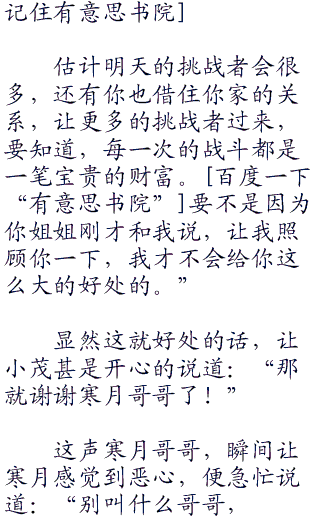 记住有意思书院]
估计明天的挑战者会很
多，还有你也借住你家的关
系，让更多的挑战者过来，
要知道，每一次的战斗都是
一笔宝贵的财富。[百度一下
“有意思书院”]要不是因为
你姐姐刚才和我说，让我照
顾你一下，我才不会给你这
么大的好处的。”
显然这就好处的话，让
小茂甚是开心的说道：“那
就谢谢寒月哥哥了！”
这声寒月哥哥，瞬间让
寒月感觉到恶心，便急忙说
道：“别叫什么哥哥，